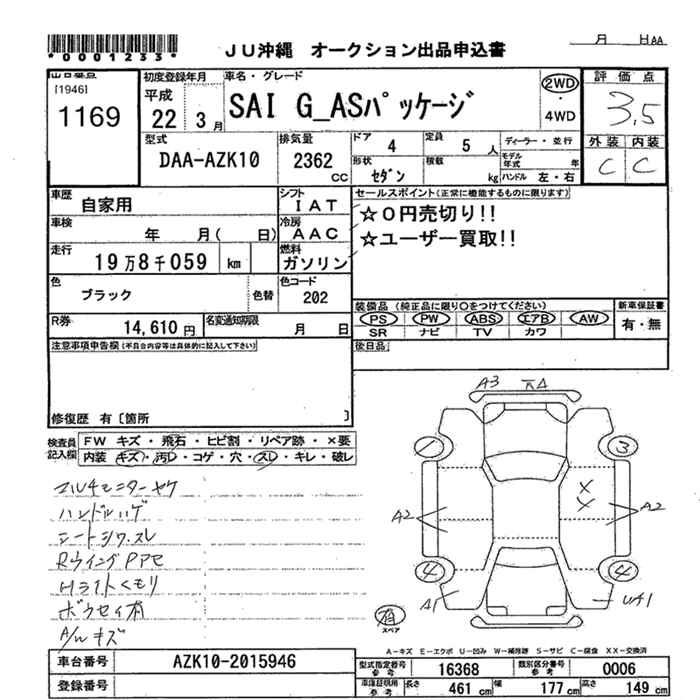 *0001233*
JU沖縄 オークション出品申込書
月 日AA
出品番号
[1946]
1169
初度登録年月
平成
22 3月
車名・グレード
SAI G_ASパッケージ
2WD
・
4WD
評価点
3.5
外装 内装
C C
型式
DAA-AZK10
排気量
2362
CC
ドア 4
定員 5 人
形状 セダン
積載 kg
ディーラー・並行
モデル年式 年
ハンドル 左・右
車歴 自家用
シフト IAT
車検 年 月( 日)
冷房 AAC
走行 19万8千059 km
燃料 ガソリン
色 ブラック
色替
色コード 202
R券 14,610円
名変通知期限 月 日
セールスポイント(正常に機能するものに限ります)
☆0円売切り!!
☆ユーザー買取!!
装備品 (純正品に限り○をつけてください)
PS PW ABS エアB AW
SR ナビ TV カワ
新車保証書
有・無
後日品
注意事項申告欄(不具合内容等は具体的に記入して下さい)
修復歴 有 [箇所 ]
検査員記入欄
FW キズ・飛石・ヒビ割・リペア跡・×要
内装 キズ・汚レ・コゲ・穴・スレ・キレ・破レ
マルチモニターヤケ
ハンドルハゲ
シートシワ.スレ
RウイングPアセ
Hライトくもり
ボウセイ有
A/Wキズ
A3
A2
A2
A1
UA1
1
3
4
4
X
X
有
スペア
A-キズ E-エクボ U-凹み W-補修跡 S-サビ C-腐食 XX-交換済
車台番号 AZK10-2015946
登録番号
型式指定番号 参考 16368
類別区分番号 参考 0006
車庫証明用 参考 長さ 461 cm 幅 177 cm 高さ 149 cm